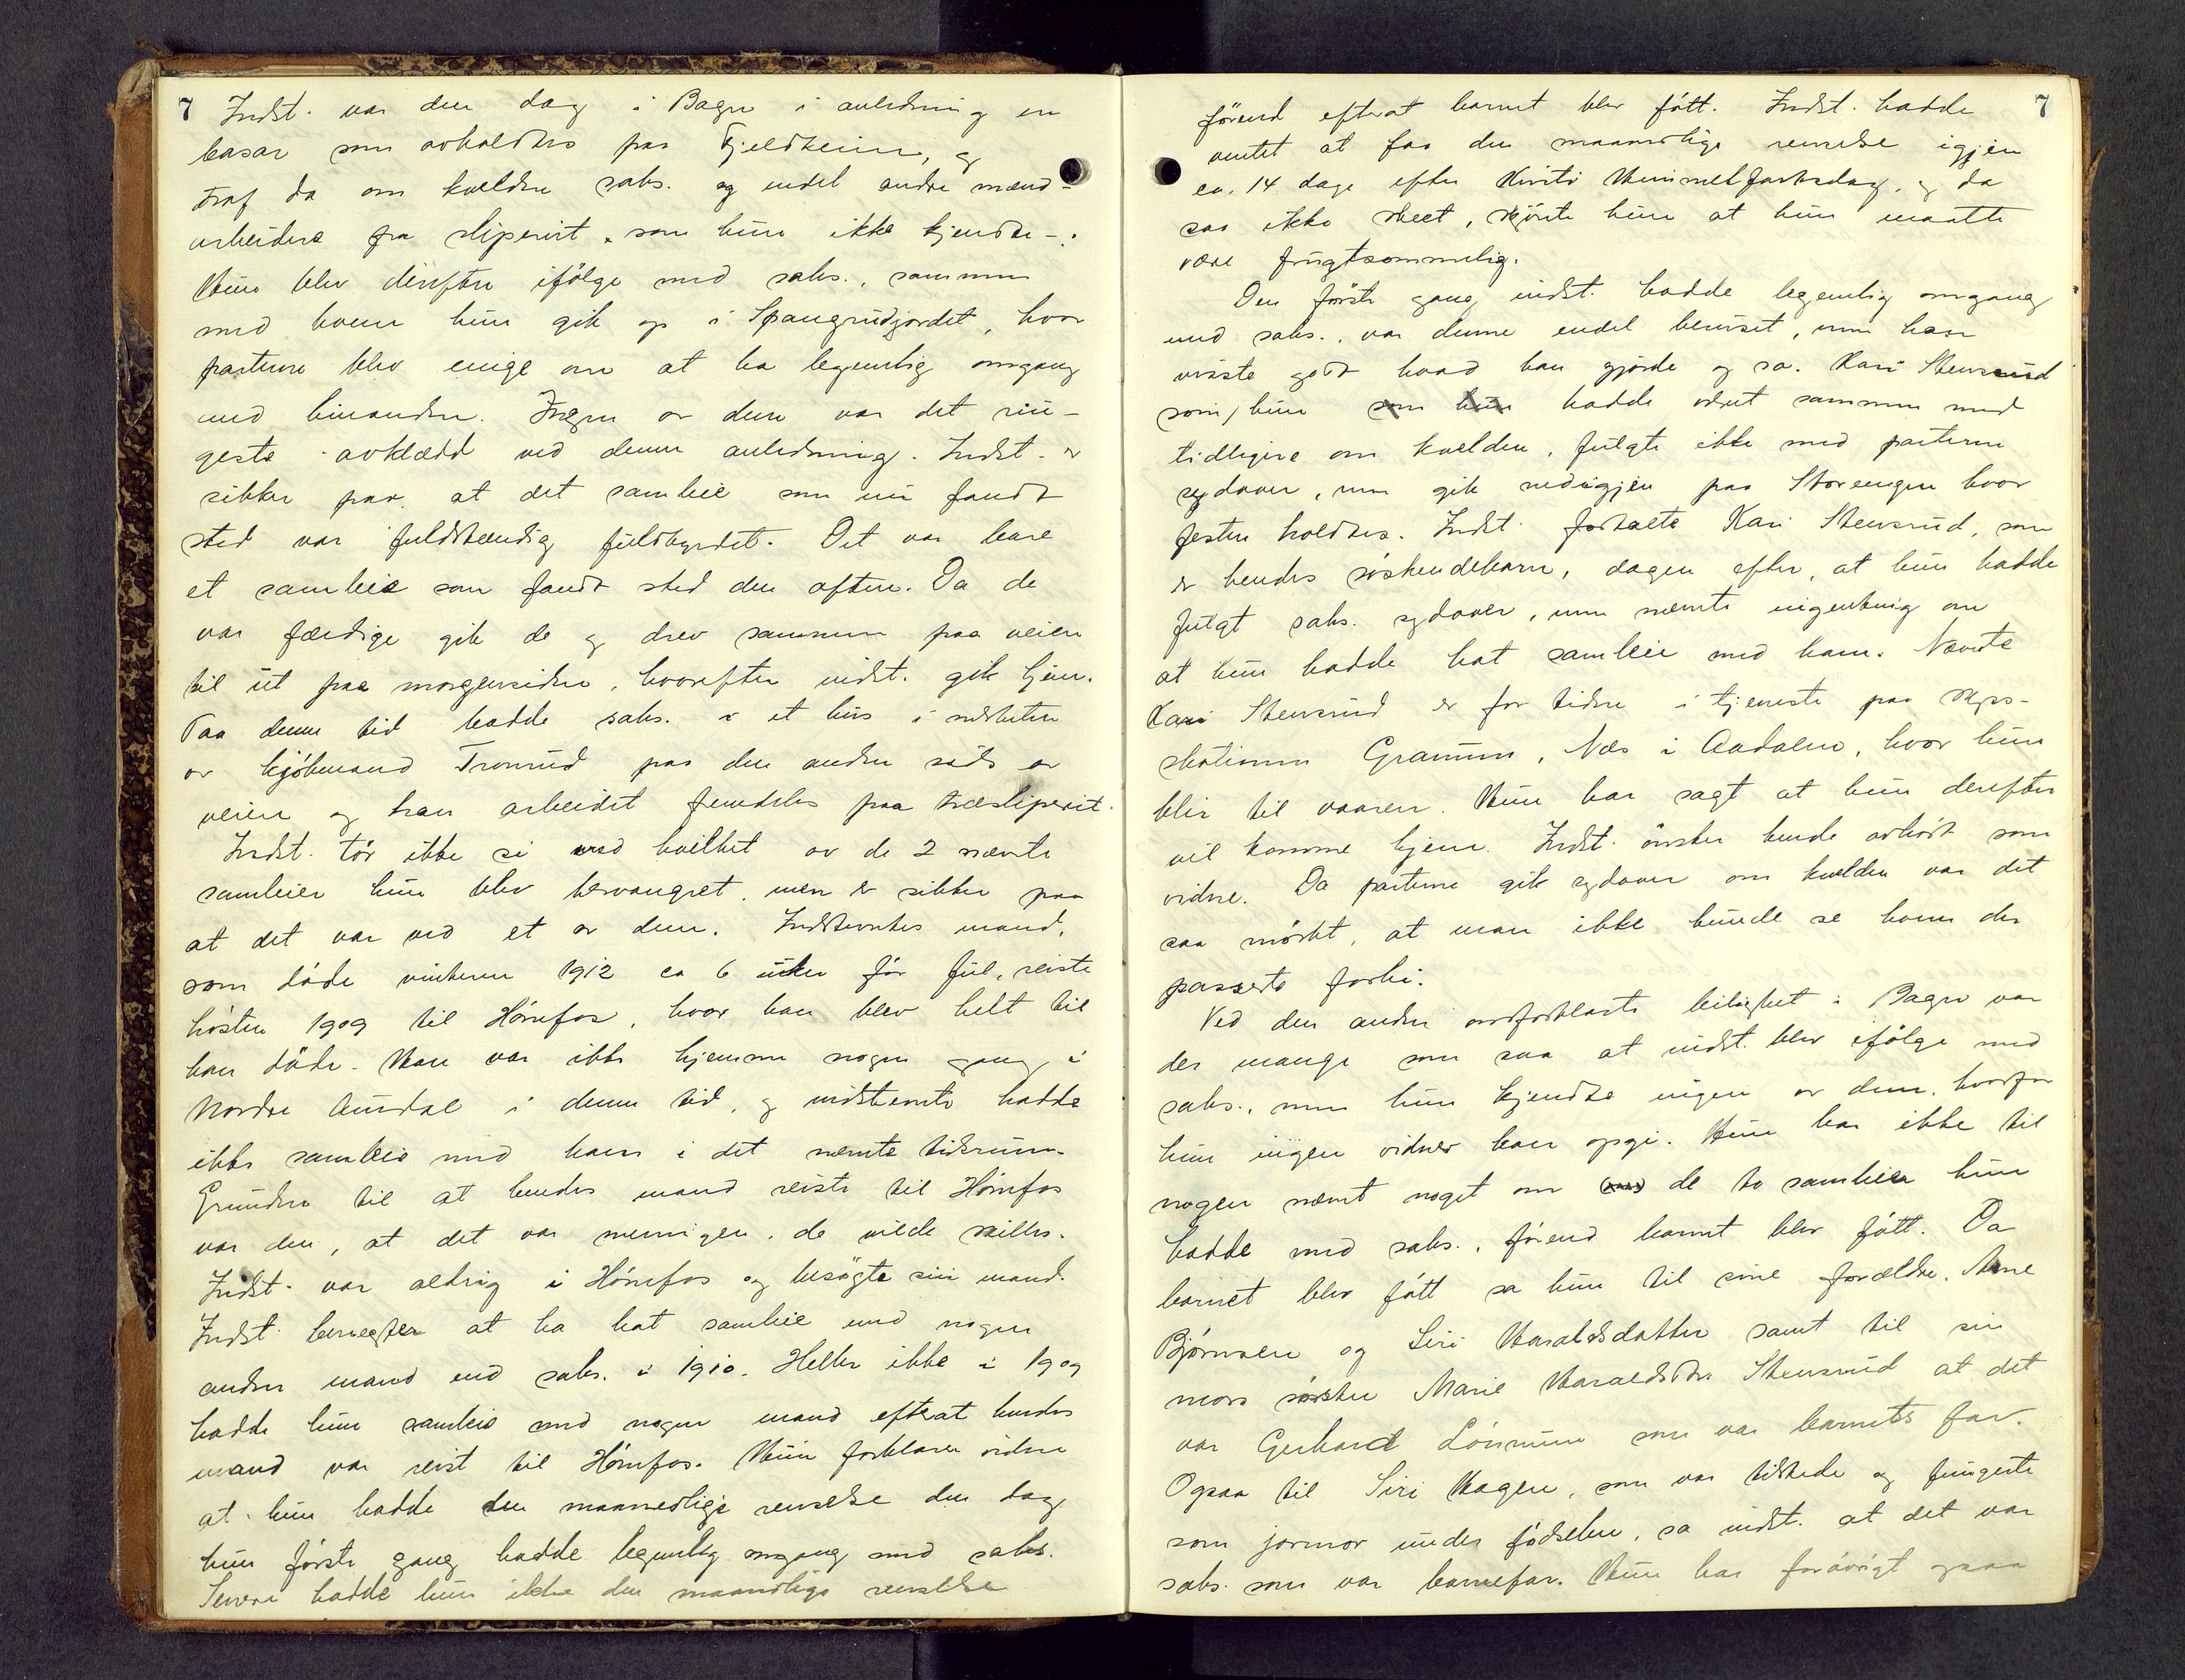 7
Indst. var den dag i Bagn i anledning en
basar som avholdtes paa Fjeldheim, og
traf da om kvelden saks. og endel andre mænd -
arbeidere fra sliperiet, som hun ikke kjendte -.
Hun blev derefter ifölge med saks., sammen
med hvem hun gik op i Spangrudjordet, hvor
parterne blev enige om at ha legemlig omgang
med hinanden. Ingen av dem var det rin-
geste avklædd ved denne anledning. Indst. er
sikker paa at det samleie som nu fandt
sted var fuldstændig fuldbyrdet. Det var bare
et samleie som fandt sted den aften. Da de
var færdige gik de og drev sammen paa veien
til ut paa morgensiden, hvorefter indst. gik hjem.
Paa denne tid hadde saks. i et hus i nærheten
av kjöbmand Tronrud paa den anden side av
veien og han arbeidet fremdeles paa træsliperiet.
Indst. tör ikke si ved hvilket av de 2 nævnte
samleier hun blev besvangret, men er sikker paa
at det var ved et av dem. Indstevntes mand,
som döde vinteren 1912 ca 6 uker för jul, reiste
hösten 1909 til Hönefos, hvor han blev helt til
han döde. Han var ikke hjemme nogen gang i
Nordre Aurdal i denne tid, og indstevnte hadde
ikke samleie med ham i det nævnte tidsrum.
Grunden til at hendes mand reiste til Hönefos
var den, at det var meningen, de vilde skilles.
Indst. var aldrig i Hönefos og besögte sin mand.
Indst. benegter at ha hat samleie med nogen
anden mand end saks. i 1910. Heller ikke i 1909
hadde hun samleie med nogen mand efterat hendes
mand var reist til Hönefos. Hun forklarer videre
at hun hadde den maanedlige renselse den dag
hun förste gang hadde legemlig omgang med saks.
Senere hadde hun ikke den maanedlige renselse
7
förend efterat barnet blev född. Indst. hadde
ventet at faa den maanedlige renselse igjen
ca. 14 dage efter Kristi Himmelfartsdag, og da
saa ikke skeet, skjönte hun at hun maatte
være frugtsommelig.
Den förste gang indst. hadde legemlig omgang
med saks., var denne endel beruset, men han
visste godt hvad han gjorde og sa. Kari Stensrud
som, hun som hun hadde været sammen med
tidligere om kvelden, fulgte ikke med parterne
sydover, men gik nedigjen paa Storeengen hvor
festen holdtes. Indst. fortalte Kari Stensrud, som
er hendes söskendebarn, dagen efter, at hun hadde
fulgt saks. sydover, men nævnte ingenting om
at hun hadde hat samleie med ham. Nævnte
Kari Stensrud er for tiden i tjeneste paa skys-
stationen Granum, Næs i Aadalen, hvor hun
blir til vaaren. Hun har sagt at hun derefter
vil komme hjem. Indst. önsker hende avhört som
vidne. Da parterne gik sydover om kvelden var det
saa mörkt, at man ikke kunde se hvem der
passerte forbi.
Ved den anden omforklarte leilighet i Bagn var
der mange som saa at indst. blev ifölge med
saks., men hun kjendte ingen av dem, hvorfor
hun ingen vidner kan opgi. Hun har ikke til
nogen nævnt noget om de to samleier hun
hadde med saks., förend barnet blev född. Da
barnet blev född sa hun til sine forældre, Arne
Björnsen og Siri Haraldsdatter samt til sin
mors söster Marie Haraldsdtr Stensrud at det
var Gerhard Lönnum som var barnets far.
Ogsaa til Siri Hagen, som var tilstede og fungerte
som jormor under födselen, sa indst. at det var
saks. som var barnefar. Hun har forövrigt ogsaa